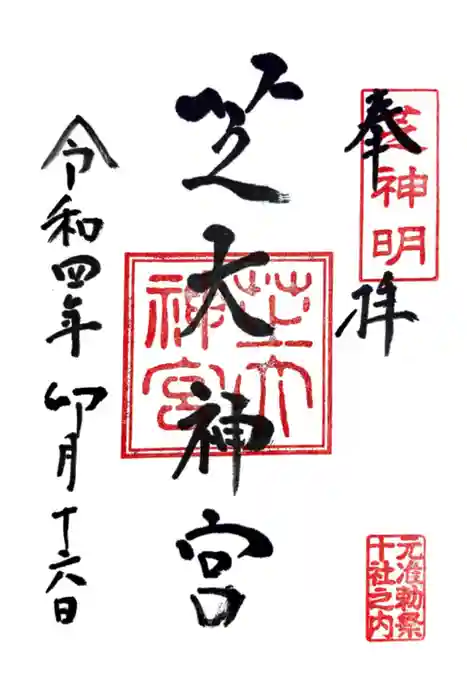 奉拝
芝神明
元准勅祭
十社之内
芝大神宮
芝大
神宮
令和四年 卯月十六日